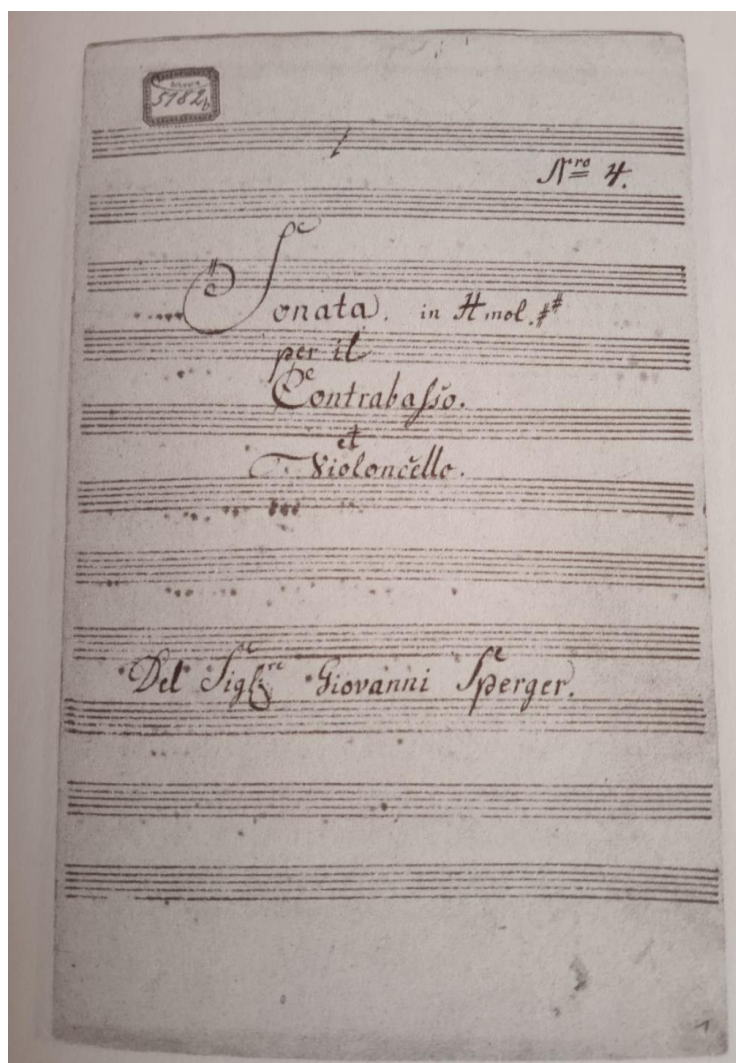 5182b
Nro 4.
Sonata. in H mol. ##
per il
Contrabasso.
et
Violoncello.
Del Siglre Giovanni Sperger.
1